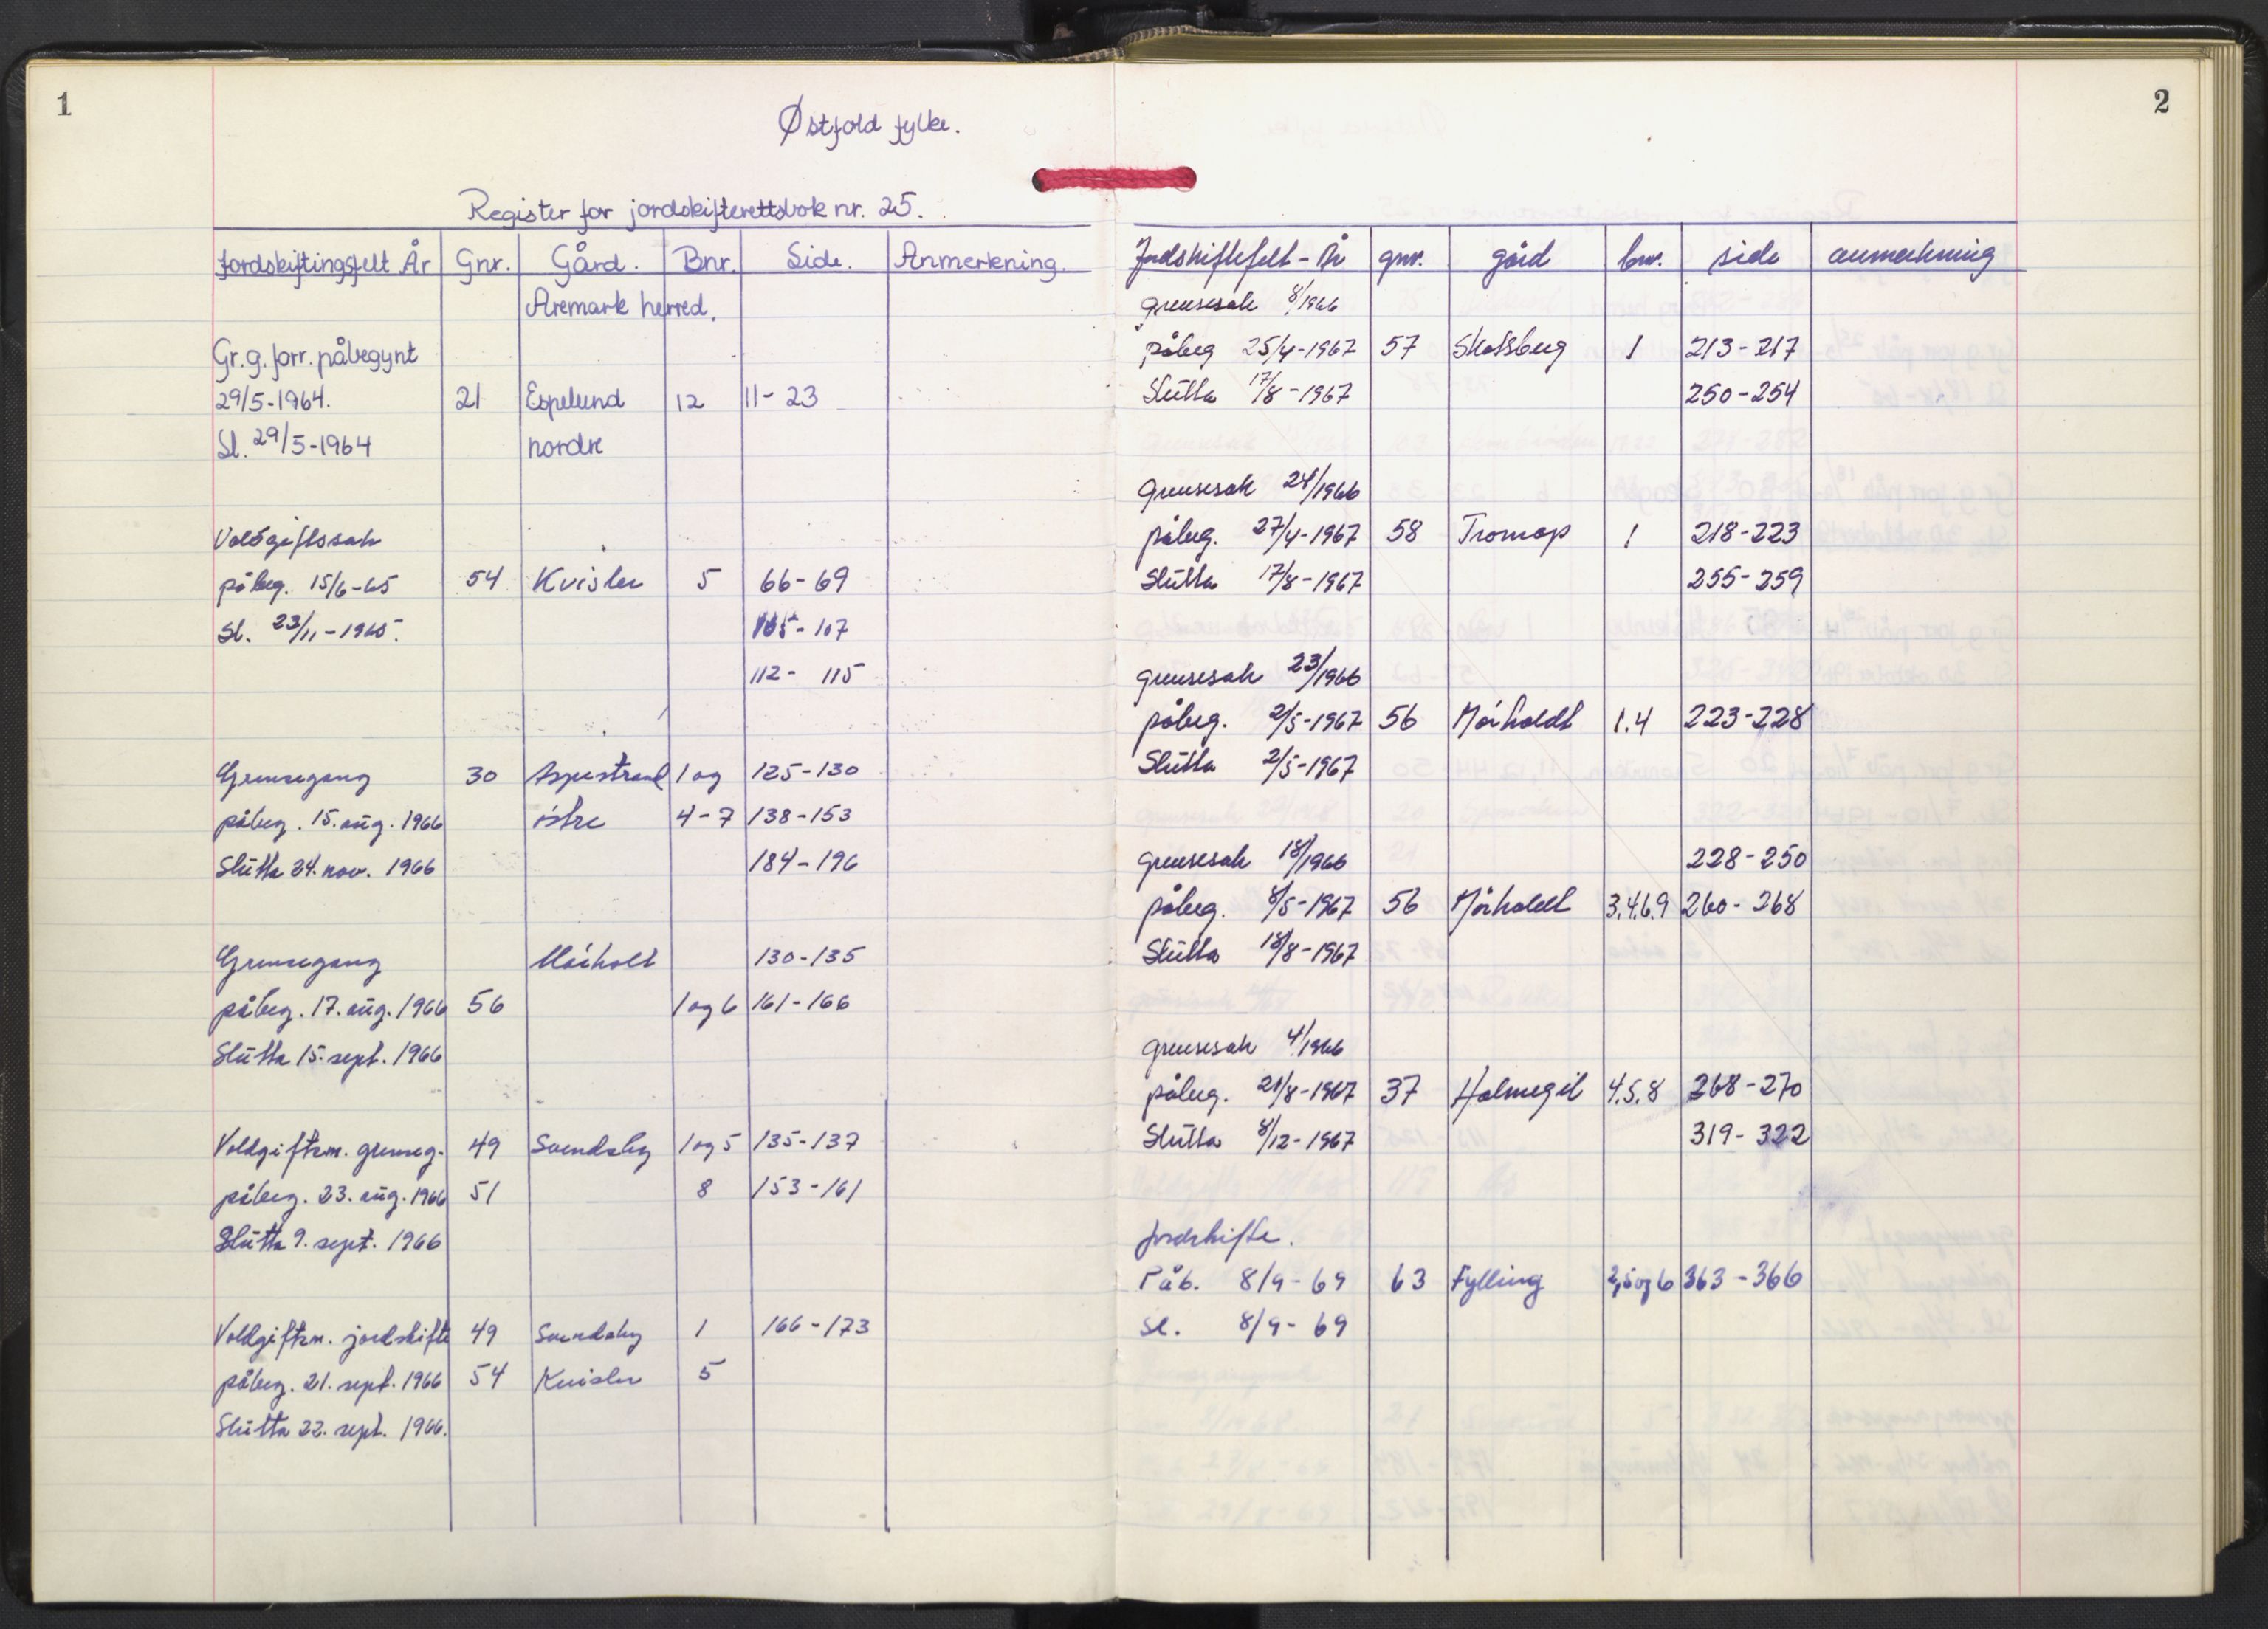 1
Østfold fylke.
Register for jordskifterettsbok nr. 25.
Jordskiftingsfelt År Gnr. Gård. Bnr. Side. Anmerkning.
Aremark herred.
Gr.g.forr. påbegynt
29/5-1964. 21 Espelund 12 11-23
Sl. 29/5-1964 nordre
Voldgiftssak
påbeg. 15/6-65 54 Kvisler 5 66-69
Sl. 23/11-1965. 105-107
112- 115
Grensegang 30 Aspestrand 1 og 125-130
påbeg. 15. aug. 1966 østre 4-7 138-153
Slutta 24. nov. 1966 184-196
Grensegang Mørholt 130-135
påbeg. 17. aug. 1966 56 1 og 6 161-166
Slutta 15. sept. 1966
Voldgiftsm. grenseg. 49 Svendsby 1 og 5 135-137
påbeg. 23. aug. 1966 51 8 153-161
Slutta 9. sept. 1966
Voldgiftsm. jordskifte 49 Svendsby 1 166-173
påbeg. 21. sept. 1966 54 Kvisler 5
Slutta 22. sept. 1966.
2
Jordskiftefelt - År gnr. gård bnr. side anmerkning
grensesak 8/1966
påbeg 25/4-1967 57 Skotsberg 1 213-217
Slutta 17/8-1967 250-254
grensesak 24/1966
påbeg. 27/4-1967 58 Tromop 1 218-223
Slutta 17/8-1967 255-259
grensesak 23/1966
påbeg. 2/5-1967 56 Mørholdt 1.4 223-228
Slutta 2/5-1967
grensesak 18/1966 228-250
påbeg. 8/5-1967 56 Mørholdt 3.4.6.9 260-268
Slutta 18/8-1967
grensesak 4/1966
påbeg. 21/8-1967 37 Holmegil 4.5.8 268-270
Slutta 8/12-1967 319-322
Jordskifte.
Påb. 8/9-69 63 Fylling 2,5 og 6 363-366
Sl. 8/9-69